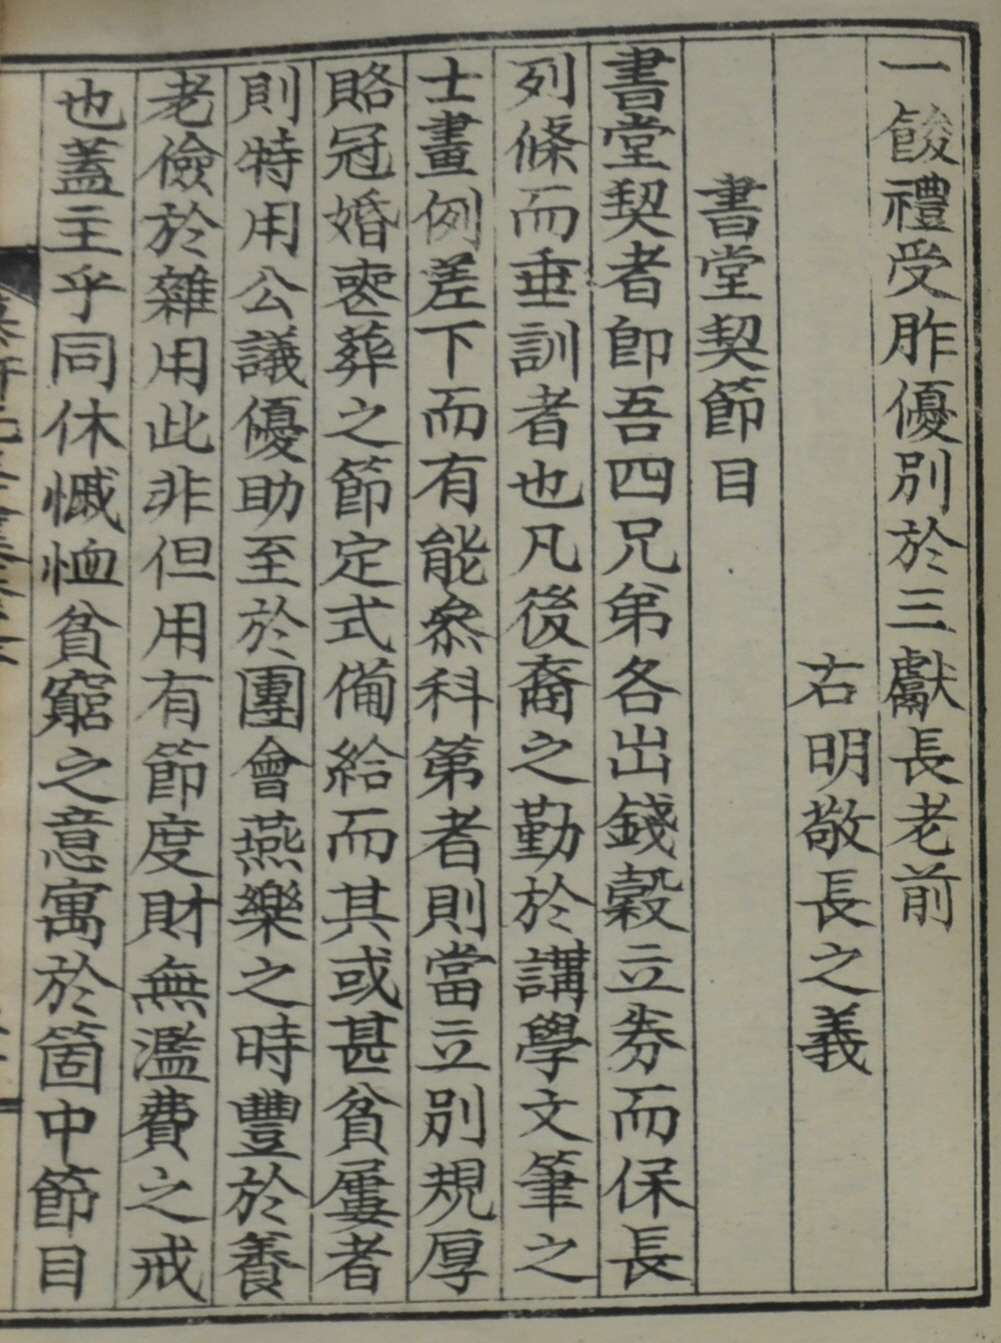 一餕禮受胙優別於三獻長老前
右明敬長之義
書堂契節目
書堂契者卽吾四兄弟各出錢穀立券而保長
列條而垂訓者也凡後裔之勤於講學文筆之
士畫例差下而有能叅科第者則當立別規厚
賂冠婚喪葬之節定式備給而其或甚貧屢者
則特用公議優助至於團會燕樂之時豐於養
老儉於雜用此非但用有節度財無濫費之戒
也蓋主乎同休慽恤貧窮之意寓於箇中節目